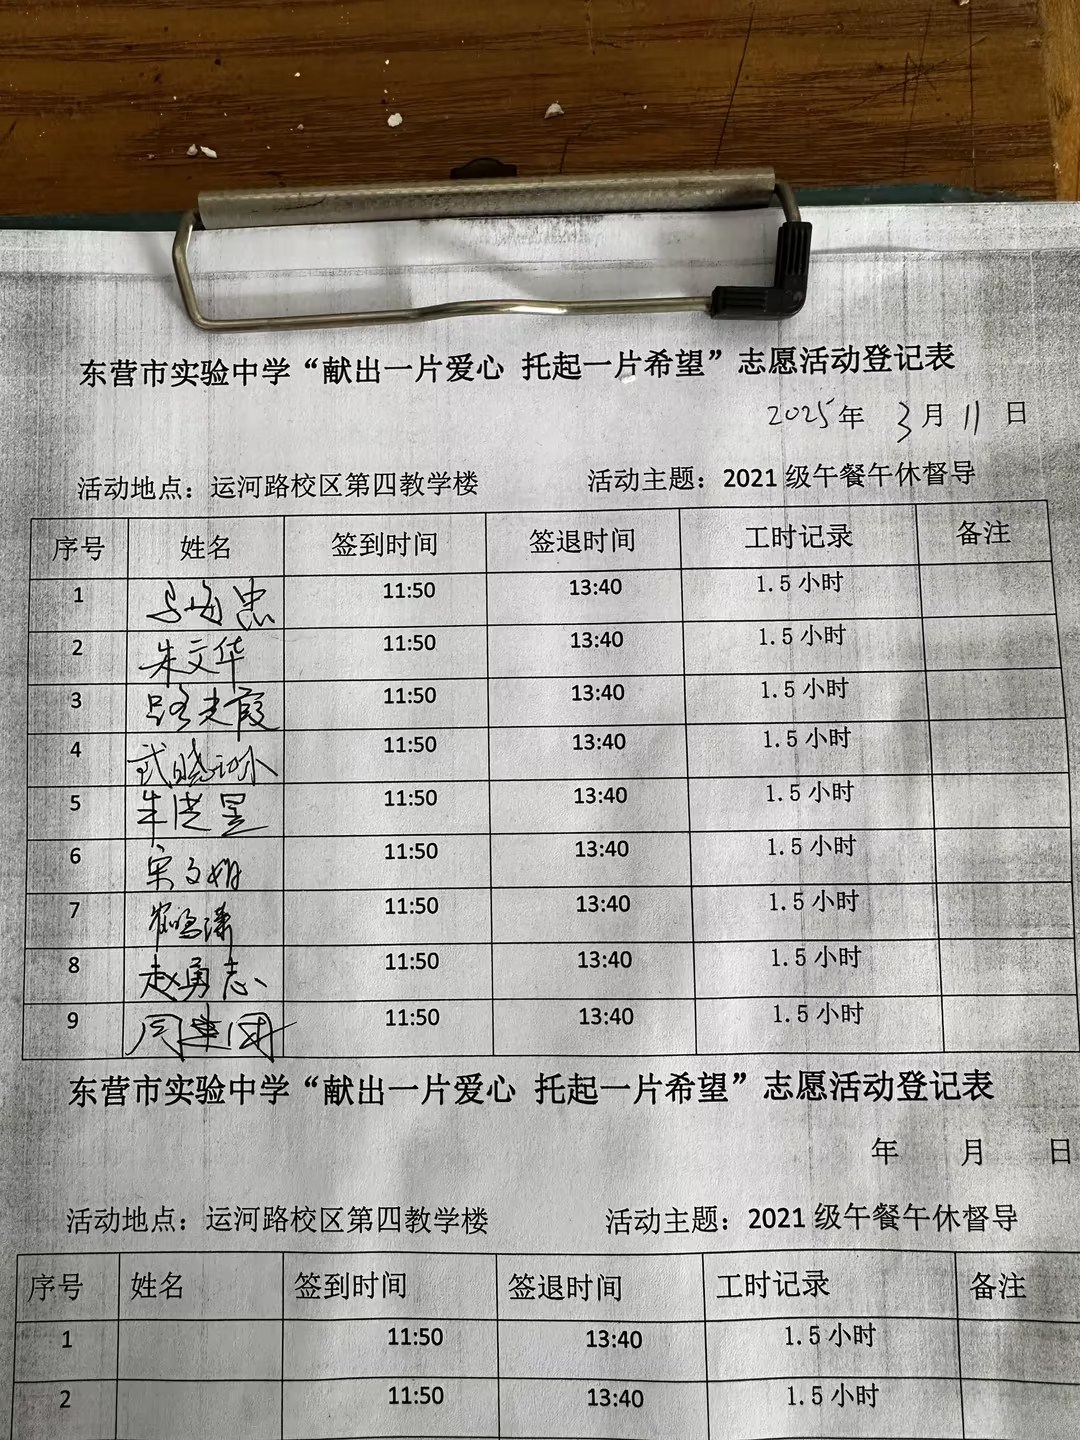 东营市实验中学“献出一片爱心 托起一片希望”志愿活动登记表
2025年 3月 11日
活动地点：运河路校区第四教学楼 活动主题：2021级午餐午休督导
序号 姓名 签到时间 签退时间 工时记录 备注
1 11:50 13:40 1.5小时
2 朱文华 11:50 13:40 1.5小时
3 11:50 13:40 1.5小时
4 11:50 13:40 1.5小时
5 11:50 13:40 1.5小时
6 宋文娟 11:50 13:40 1.5小时
7 11:50 13:40 1.5小时
8 赵勇志 11:50 13:40 1.5小时
9 周建国 11:50 13:40 1.5小时
东营市实验中学“献出一片爱心 托起一片希望”志愿活动登记表
年 月 日
活动地点：运河路校区第四教学楼 活动主题：2021级午餐午休督导
序号 姓名 签到时间 签退时间 工时记录 备注
1 11:50 13:40 1.5小时
2 11:50 13:40 1.5小时